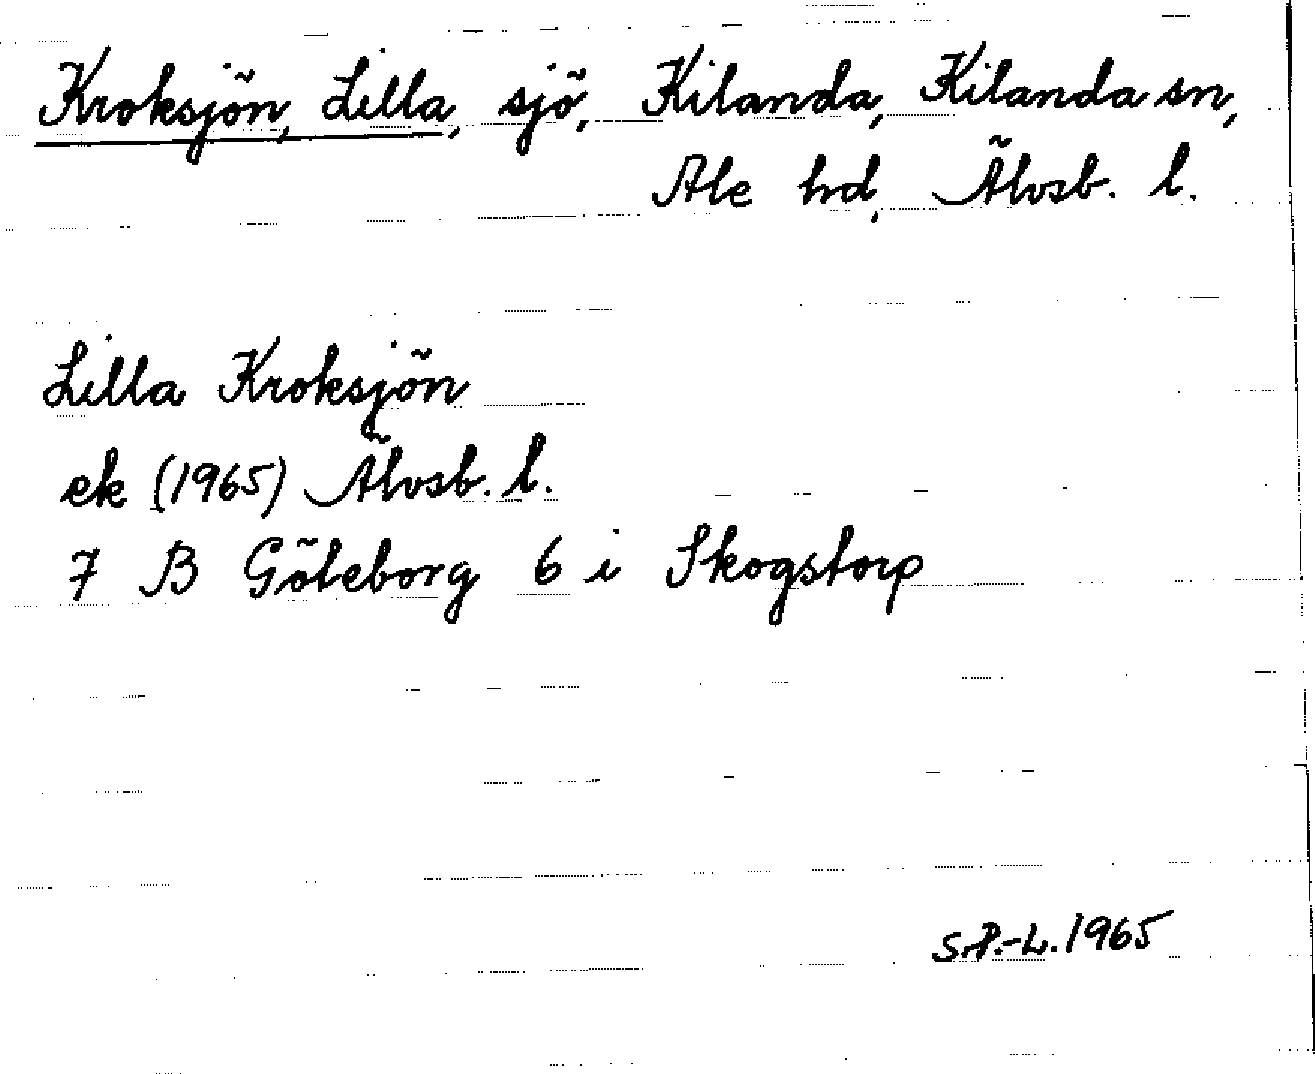 Kroksjön, Lilla, sjö, Kilanda, Kilanda sn,
Ale hd, Älvsb. l.
Lilla Kroksjön
ek (1965) Älvsb. l.
7 B Göteborg 6 i Skogstorp
S.P.-L. 1965